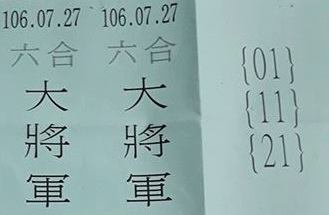 106.07.27 106.07.27
六合 六合
大將軍 大將軍
{01}
{11}
{21}